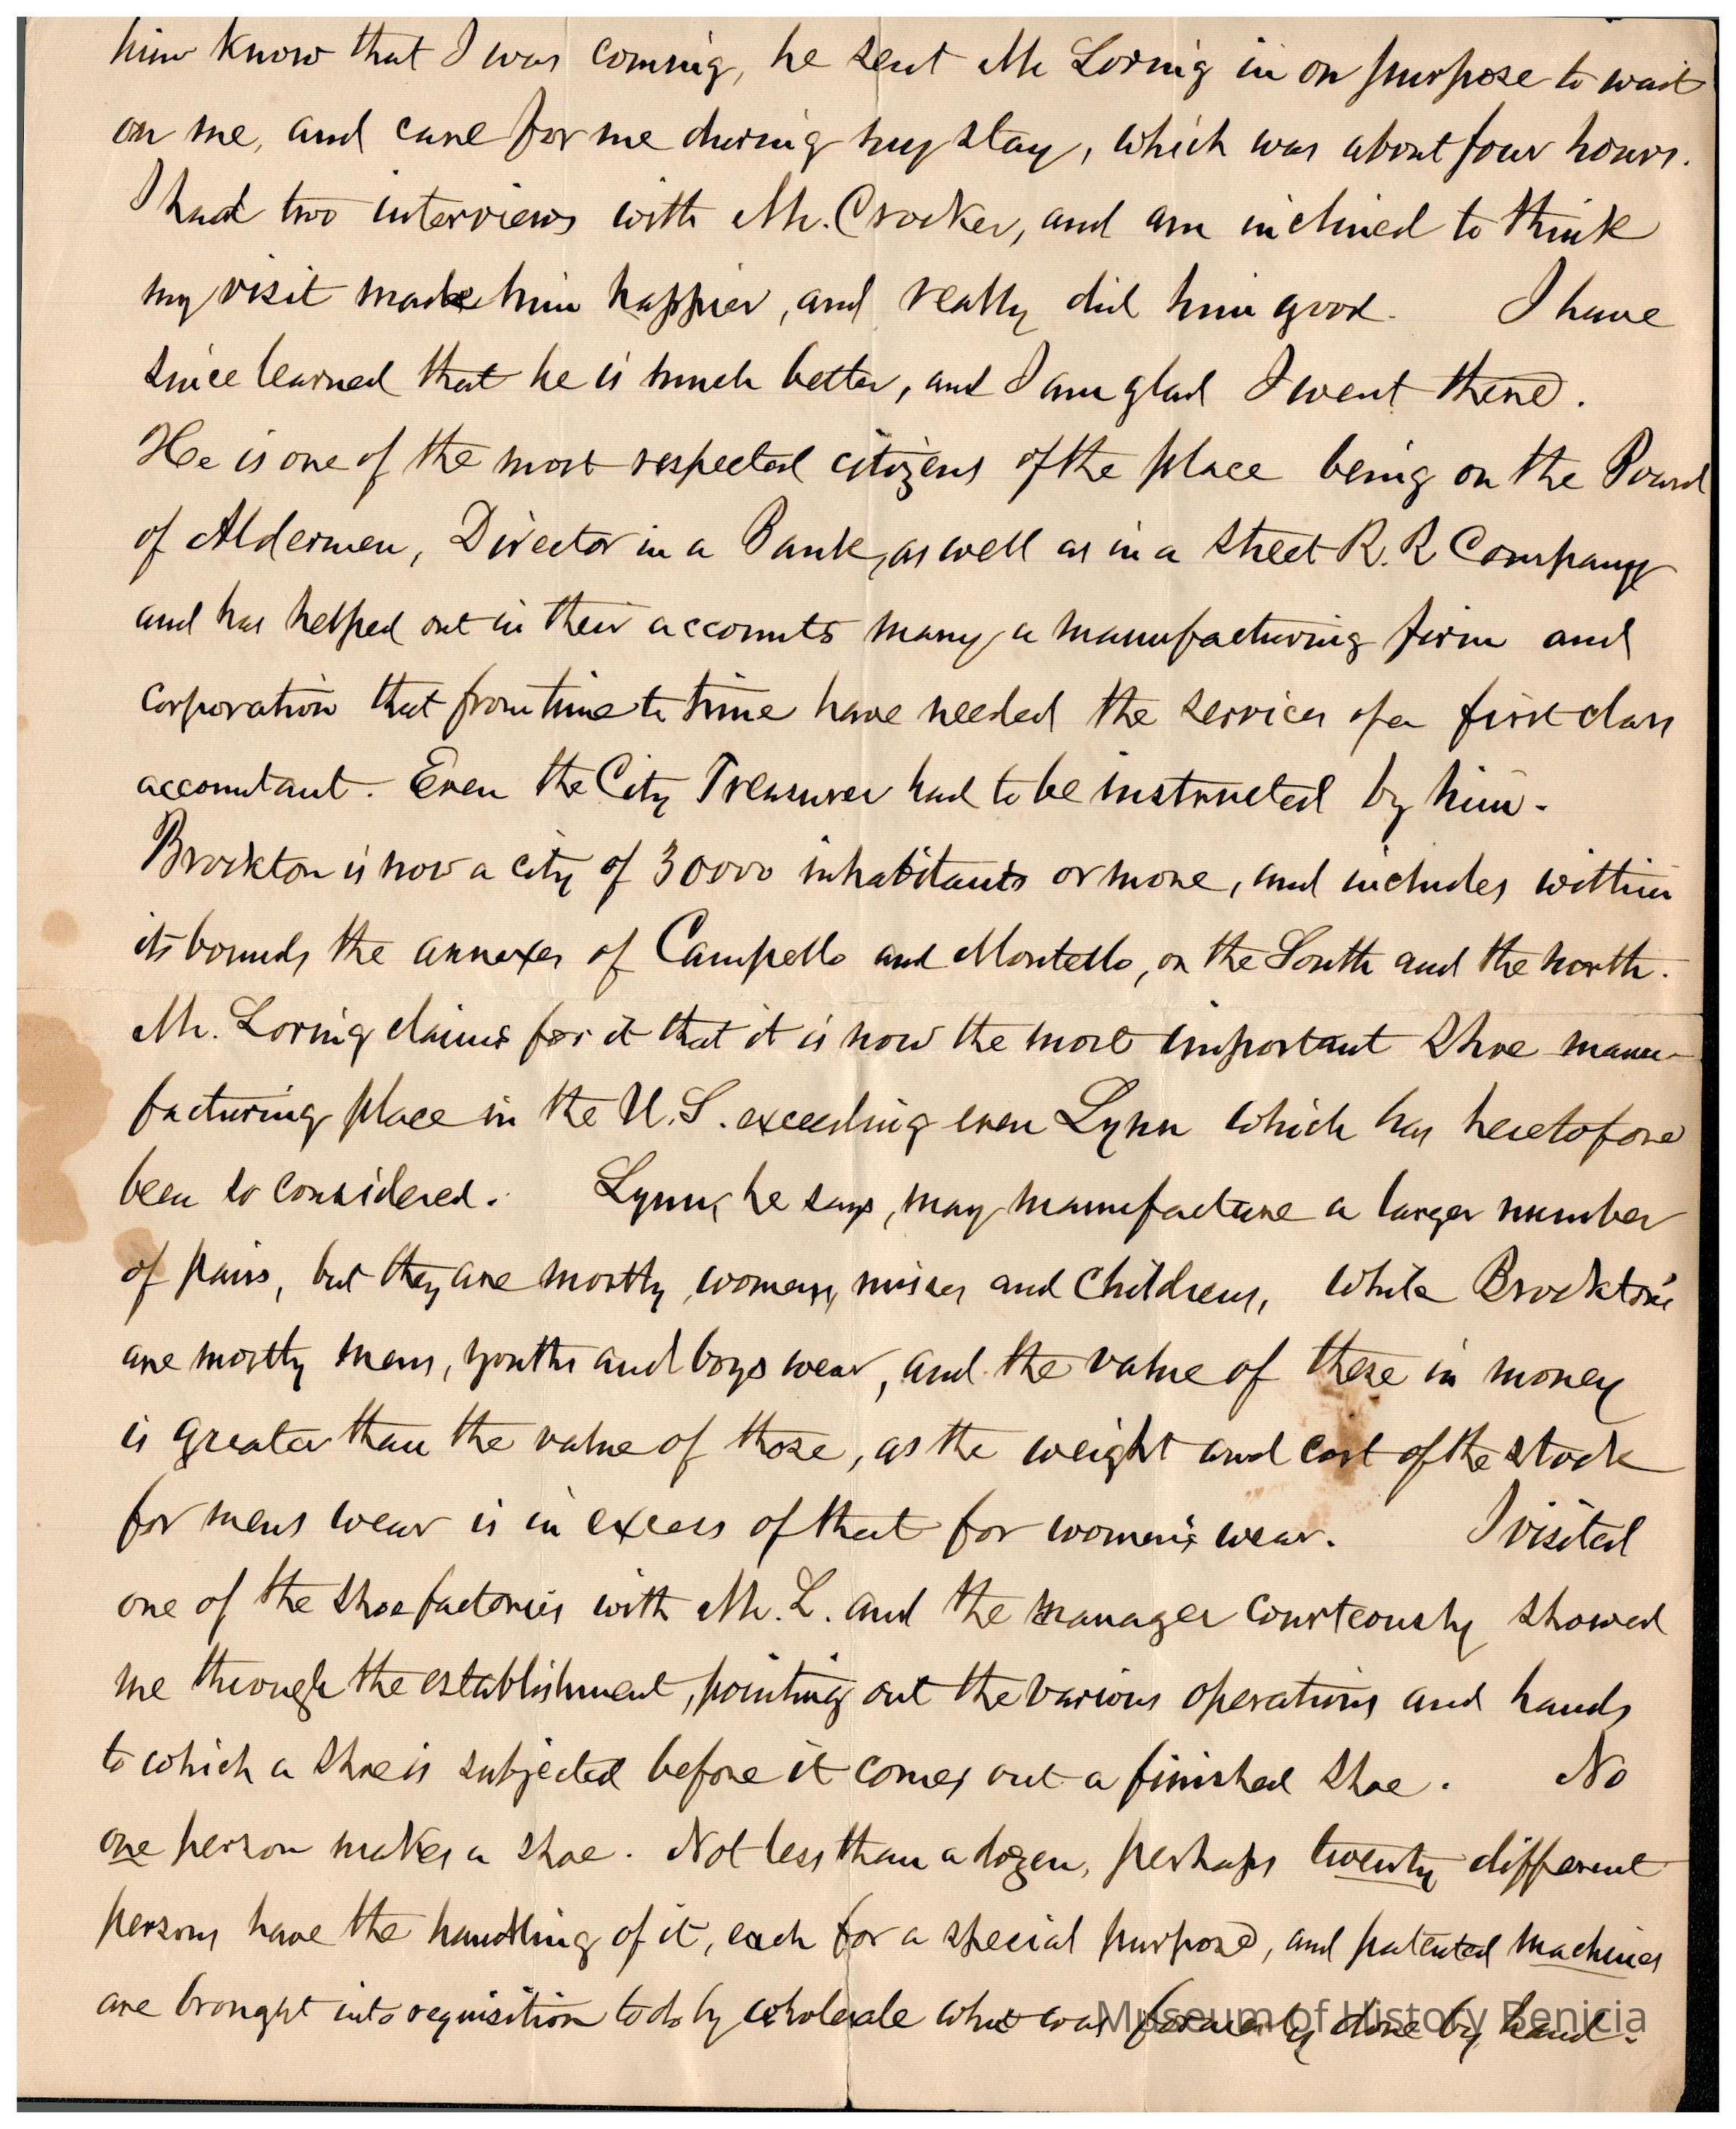 him know that I was coming, he sent Mr Loring in on purpose to wait
on me, and care for me during my stay, which was about four hours.
I had two interviews with Mr. Crocker, and am inclined to think
my visit made him happier, and really did him good. I have
since learned that he is much better, and I am glad I went there.
He is one of the most respected citizens of the place being on the Board
of Aldermen, Director in a Bank, as well as in a street R. R Company
and has helped out in their accounts many a manufacturing firm and
corporation that from time to time have needed the services of a first class
accountant. Even the City Treasurer had to be instructed by him.
Brockton is now a city of 30000 inhabitants or more, and includes within
its bounds the annexes of Campello and Montello, on the South and the north.
Mr. Loring claims for it that it is now the most important shoe manu-
facturing place in the U.S. exceeding even Lynn which has heretofore
been so considered. Lynn, he says, may manufacture a larger number
of pairs, but they are mostly womens, misses and childrens, while Brockton's
are mostly mens, youths and boys wear, and the value of these in money
is greater than the value of those, as the weight and cost of the stock
for mens wear is in excess of that for women's wear. I visited
one of the shoe factories with Mr. L. and the manager courteously showed
me through the establishment, pointing out the various operations and hands
to which a shoe is subjected before it comes out a finished shoe. No
one person makes a shoe. Not less than a dozen, perhaps twenty different
persons have the handling of it, each for a special purpose, and patented machines
are brought into requisition to do by wholesale what was formerly done by hand.
Museum of History Benicia